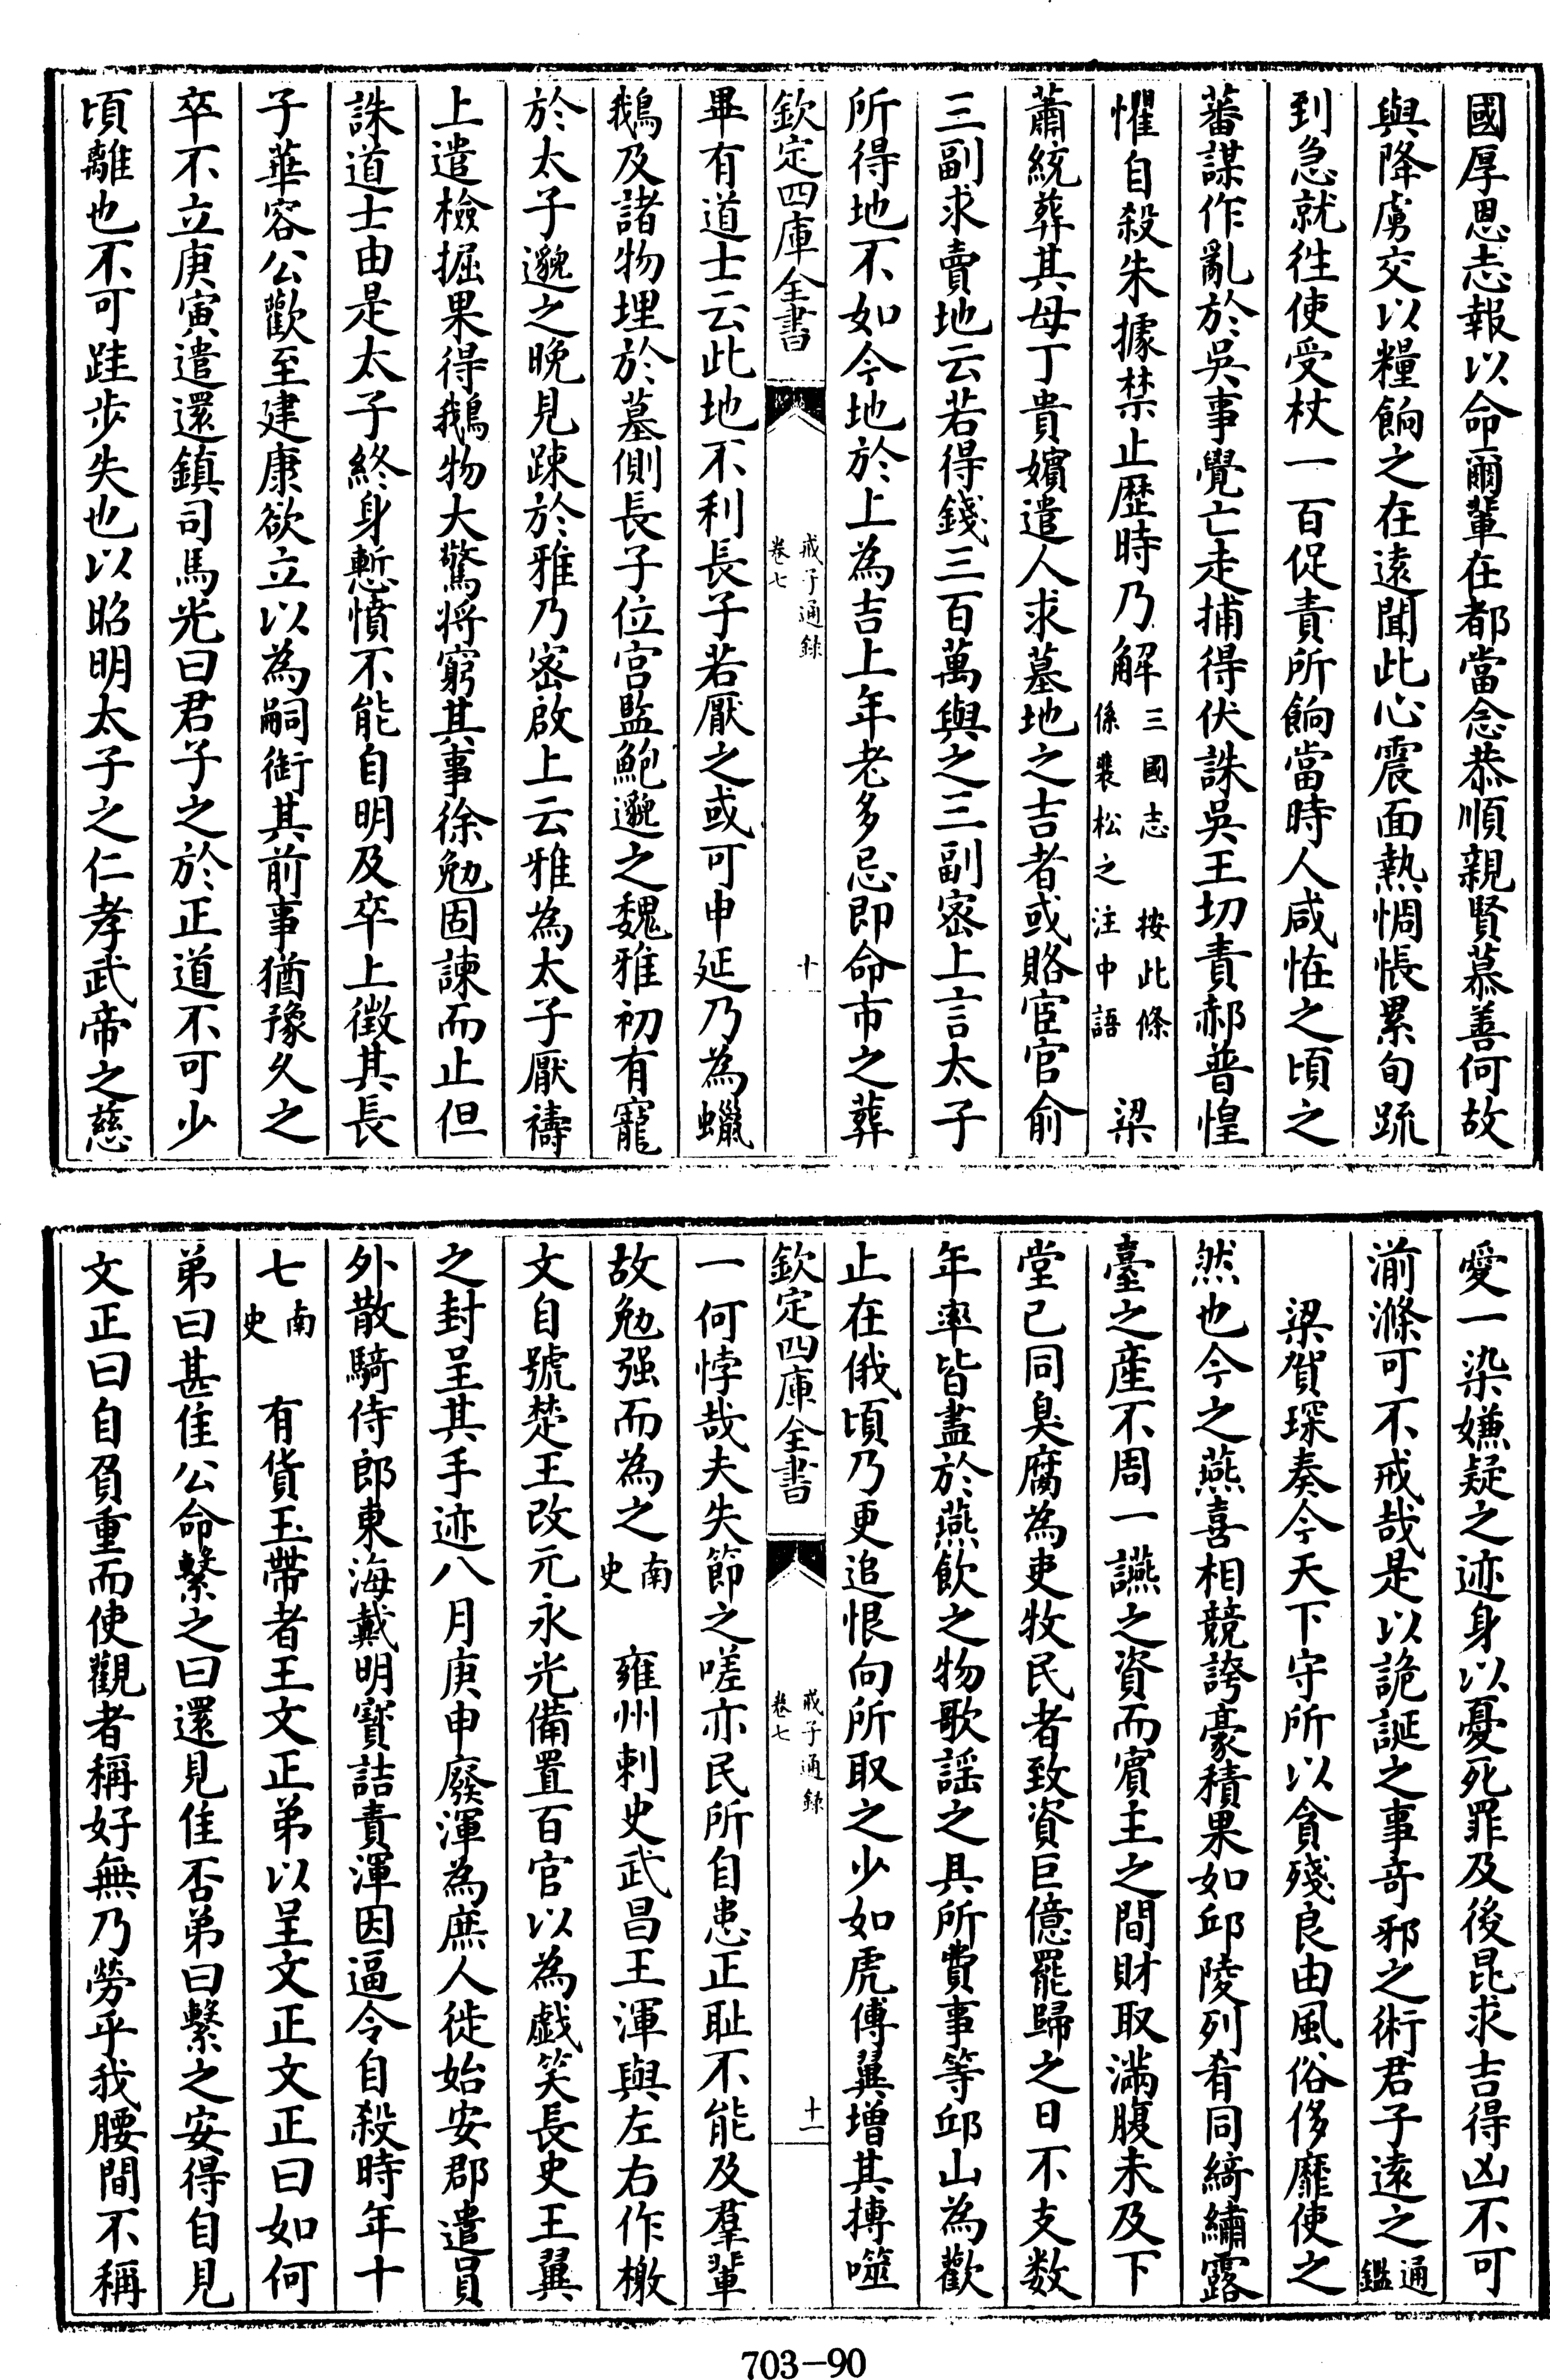 國厚恩志報以命爾輩在都當念恭順親賢慕善何故
與降虜交以糧餉之在逺聞此心震面熱惆悵累旬䟽
到急就徃使受杖一百促責所餉當時人咸怪之頃之
蕃謀作亂於吳事覺亡走捕得伏誅吳王切責郝普惶
懼自殺朱據禁止歴時乃解三國志　按此條係裴松之注中語　梁
蕭統葬其母丁貴嬪遣人求墓地之吉者或賂宦官俞
三副求賣地云若得錢三百萬與之三副宻上言太子
所得地不如今地於上為吉上年老多忌即命市之葬
欽定四庫全書
戒子通錄
卷七
十
畢有道士云此地不利長子若厭之或可申延乃為蠟
鵝及諸物埋於墓側長子位宫監鮑邈之魏雅初有寵
於太子邈之晚見踈於雅乃宻啟上云雅為太子厭禱
上遣檢掘果得鵝物大驚将窮其事徐勉固諫而止但
誅道士由是太子終身慙憤不能自明及卒上徴其長
子華容公歡至建康欲立以為嗣銜其前事猶豫久之
卒不立庚寅遣還鎮司馬光曰君子之於正道不可少
頃離也不可跬步失也以昭明太子之仁孝武帝之慈
愛一染嫌疑之迹身以憂死罪及後昆求吉得凶不可
湔滌可不戒哉是以詭誕之事竒邪之術君子逺之通鑑
梁賀琛奏今天下守所以貪殘良由風俗侈靡使之
然也今之燕喜相競誇豪積果如邱陵列肴同綺繡露
臺之産不周一讌之資而賓主之間財取滿腹未及下
堂已同臭腐為吏牧民者致資巨億罷歸之日不支數
年率皆盡於燕飲之物歌謡之具所費事等邱山為歡
止在俄頃乃更追恨向所取之少如虎傅翼增其搏噬
欽定四庫全書
戒子通錄
卷七
十一
一何悖哉夫失節之嗟亦民所自患正恥不能及羣輩
故勉强而為之南史　雍州刺史武昌王渾與左右作檄
文自號楚王改元永光備置百官以為戯笑長史王翼
之封呈其手迹八月庚申廢渾為庶人徙始安郡遣員
外散騎侍郎東海戴明寳詰責渾因逼令自殺時年十
七南史　有貨玉帶者王文正弟以呈文正文正曰如何
弟曰甚佳公命繫之曰還見佳否弟曰繫之安得自見
文正曰自負重而使觀者稱好無乃勞乎我腰間不稱
703-90